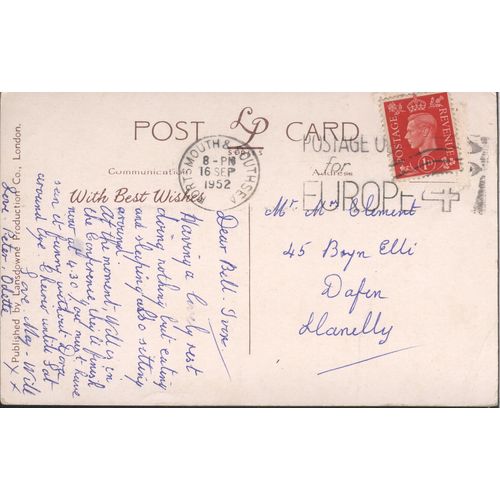 POST LP CARD
SERIES
Communication
Address
With Best Wishes
PORTSMOUTH & SOUTHSEA
8 - PM
16 SEP
1952
POSTAGE
for
EUROPE 4
POSTAGE REVENUE
Mr. Mrs Clement
45 Bryn Elli
Dafen
Llanelly
Dear Bill - Ivon
Having a lovely rest
doing nothing but eating
and sleeping also sitting
around.
At the moment, Will is in
the Conference, they finish
now at 4.30. you must have
it funny without Doreen
around you. Cheerio until Sat
Love May - Will
Love Peter. Odette
x x
Published by Lansdowne Production Co., London.